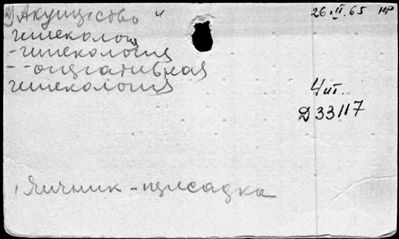 Акушерство и
гинекология
-гинекология
--оперативная
гинекология
26.II.65 НР
4 ит.
Д 33117
Яичник-присадка